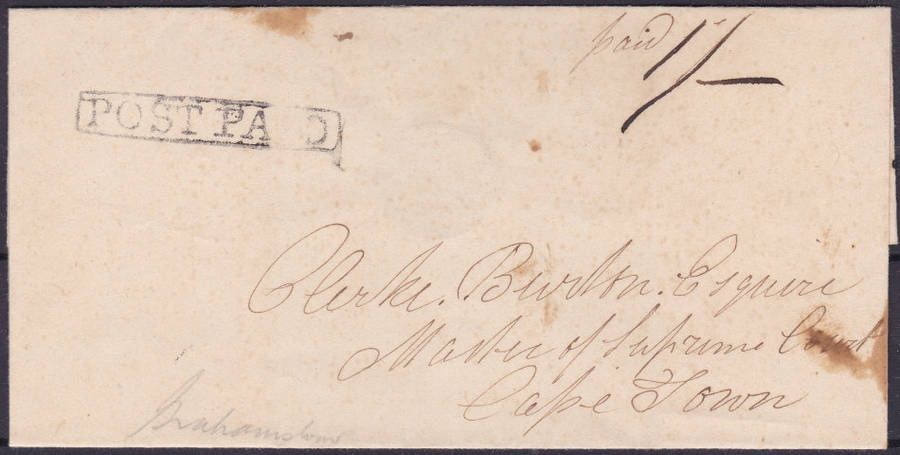 paid 1/-
POST PAID
Clerke. Burton. Esquire
Master of Supreme Court
Cape Town
Grahamstown